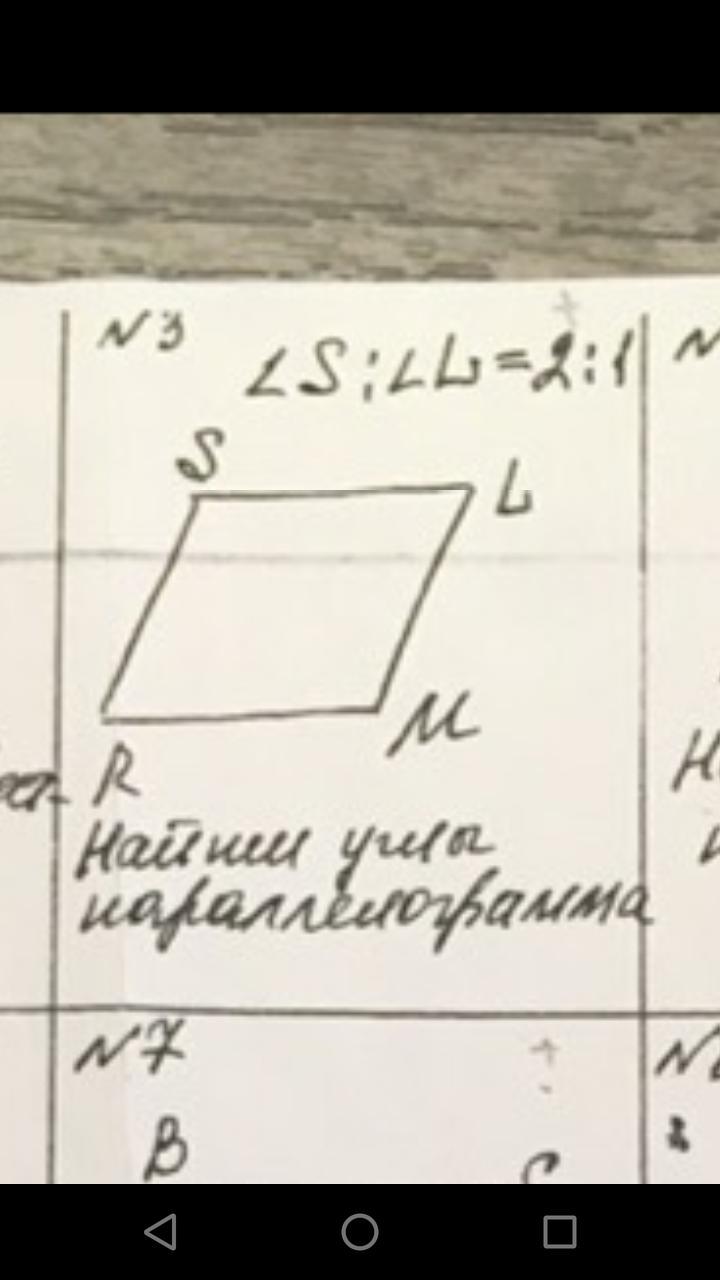 N3
∠S:∠L=2:1
S
L
M
R
Найти углы
параллелограмма
N7
B
C